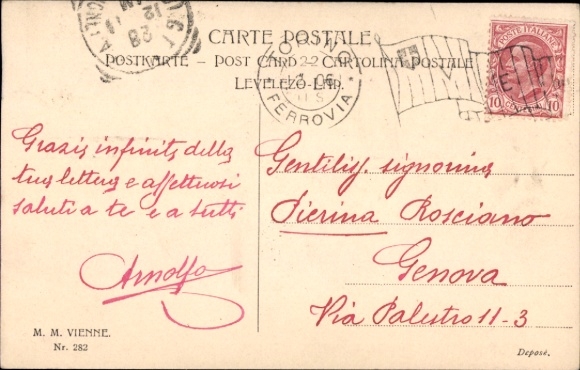 CARTE POSTALE
POSTKARTE – POST CARD – CARTOLINA POSTALE
LEVELEZŐ-LAP.
TORINO
FERROVIA
POSTE ITALIANE
10 CENTESIMI 10
Grazie infinite della
tua lettera e affettuosi
saluti a te e a tutti
Arnolfo
Gentiliss. signorina
Pierina Rosciano
Genova
Via Palestro 11-3
M. M. VIENNE.
Nr. 282
Deposé.